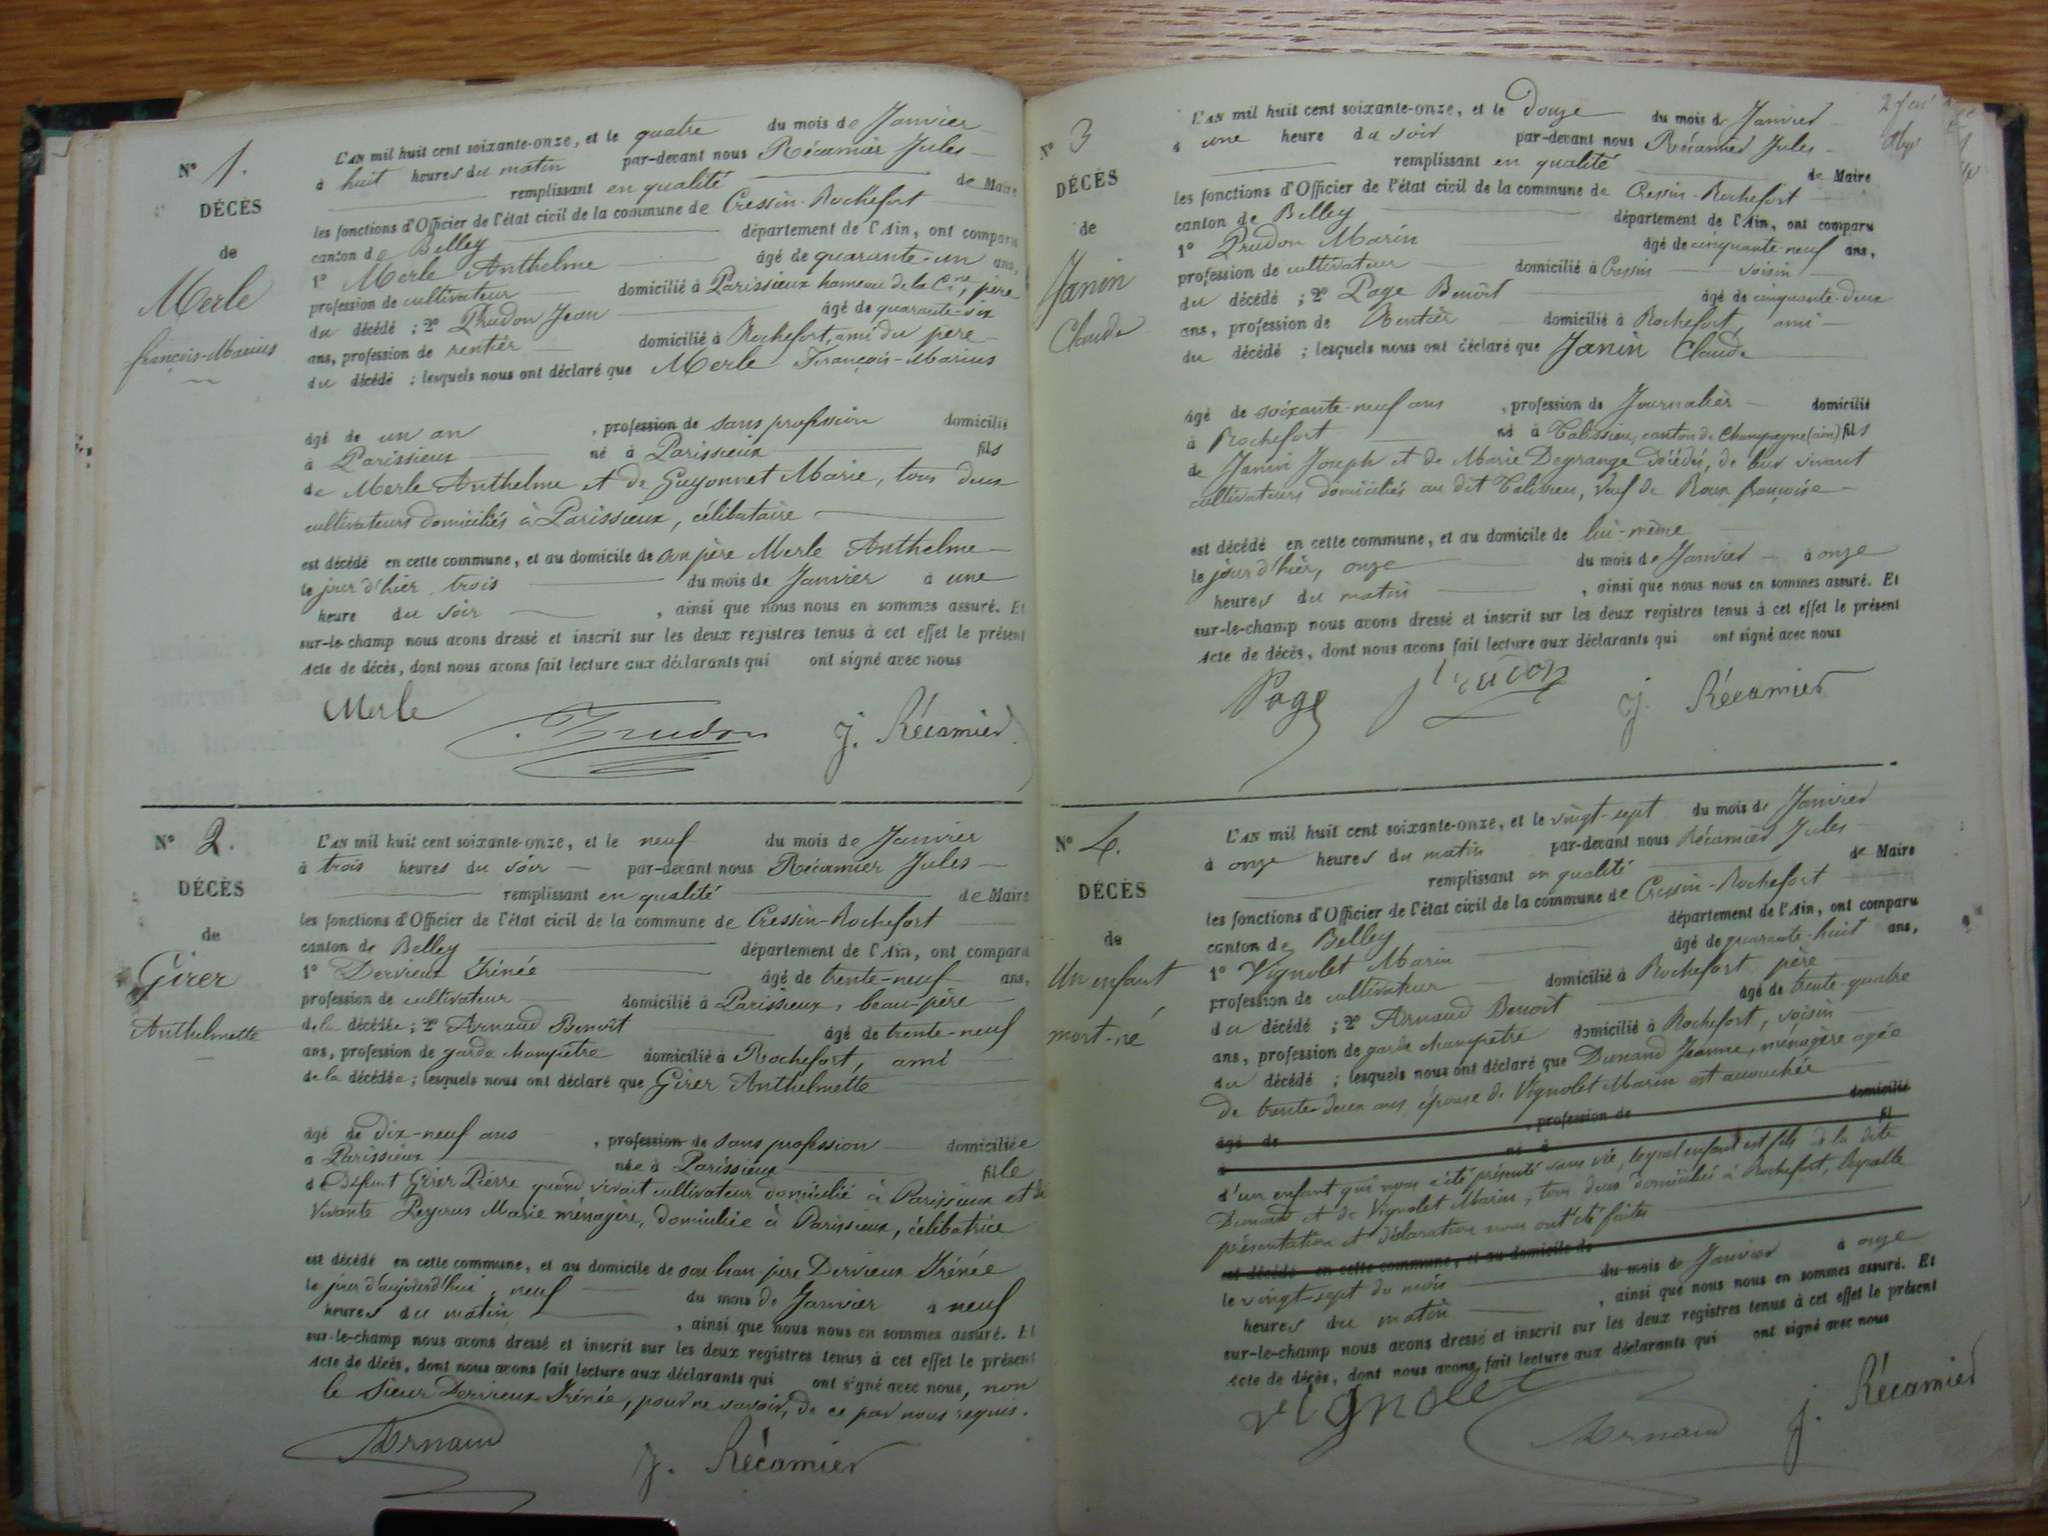 N° 1.
DÉCÈS
de
Merle
françois-Marius
L'AN mil huit cent soixante-onze, et le quatre du mois de Janvier
à huit heures du matin par-devant nous Récamier Jules
remplissant en qualité de Maire
les fonctions d'Officier de l'état civil de la commune de Cressin-Rochefort
canton de Belley département de l'Ain, ont comparu
1° Merle Anthelme âgé de quarante-un ans,
profession de cultivateur domicilié à Parissieux hameau de la Cne, père
du décédé ; 2° Prudon Jean âgé de quarante-six
ans, profession de rentier domicilié à Rochefort, ami du père
du décédé ; lesquels nous ont déclaré que Merle François-Marius
âgé de un an , profession de sans profession domicilié
à Parissieux né à Parissieux fils
de Merle Anthelme et de Guyonnet Marie, tous deux
cultivateurs domiciliés à Parissieux, célibataire
est décédé en cette commune, et au domicile de son père Merle Anthelme
le jour d'hier trois du mois de Janvier à une
heure du soir , ainsi que nous nous en sommes assuré. Et
sur-le-champ nous avons dressé et inscrit sur les deux registres tenus à cet effet le présent
acte de décès, dont nous avons fait lecture aux déclarants qui ont signé avec nous
Merle Prudon J. Récamier
N° 2.
DÉCÈS
de
Girer
Anthelmette
L'AN mil huit cent soixante-onze, et le neuf du mois de Janvier
à trois heures du soir par-devant nous Récamier Jules
remplissant en qualité de Maire
les fonctions d'Officier de l'état civil de la commune de Cressin-Rochefort
canton de Belley département de l'Ain, ont comparu
1° Dervieux Irénée âgé de trente-neuf ans,
profession de cultivateur domicilié à Parissieux, beau-père
de la décédée ; 2° Arnaud Benoît âgé de trente-neuf
ans, profession de garde champêtre domicilié à Rochefort, ami
de la décédée ; lesquels nous ont déclaré que Girer Anthelmette
âgé de dix-neuf ans , profession de sans profession domiciliée
à Parissieux née à Parissieux fille
de Défunt Girer Pierre quand vivait cultivateur domicilié à Parissieux et de
vivante Peycrus Marie ménagère, domiciliée à Parissieux, célibatrice
est décédé en cette commune, et au domicile de son beau-père Dervieux Irénée
le jour d'aujourd'hui, neuf du mois de Janvier à neuf
heures du matin , ainsi que nous nous en sommes assuré. Et
sur-le-champ nous avons dressé et inscrit sur les deux registres tenus à cet effet le présent
acte de décès, dont nous avons fait lecture aux déclarants qui ont signé avec nous, non
le sieur Dervieux Irénée, pour ne savoir, de ce par nous requis.
Arnaud J. Récamier
N° 3
DÉCÈS
de
Janin
Claude
L'AN mil huit cent soixante-onze, et le Douze du mois de Janvier
à une heure du soir par-devant nous Récamier Jules
remplissant en qualité de Maire
les fonctions d'Officier de l'état civil de la commune de Cressin-Rochefort
canton de Belley département de l'Ain, ont comparu
1° Prudon Marin âgé de cinquante-neuf ans,
profession de cultivateur domicilié à Cressin voisin
du décédé ; 2° Page Benoît âgé de cinquante-deux
ans, profession de Rentier domicilié à Rochefort, ami
du décédé ; lesquels nous ont déclaré que Janin Claude
âgé de soixante-neuf ans , profession de Journalier domicilié
à Rochefort né à Talissieu, canton de Champagne (ain) fils
de Janin Joseph et de Marie Degrange décédés, de leur vivant
cultivateurs domiciliés au dit Talissieu, veuf de Roux françoise
est décédé en cette commune, et au domicile de lui-même
le jour d'hier, onze du mois de Janvier à onze
heures du matin , ainsi que nous nous en sommes assuré. Et
sur-le-champ nous avons dressé et inscrit sur les deux registres tenus à cet effet le présent
acte de décès, dont nous avons fait lecture aux déclarants qui ont signé avec nous
Page Prudon J. Récamier
N° 4.
DÉCÈS
de
Un enfant
mort-né
L'AN mil huit cent soixante-onze, et le vingt-sept du mois de Janvier
à onze heures du matin par-devant nous Récamier Jules
remplissant en qualité de Maire
les fonctions d'Officier de l'état civil de la commune de Cressin-Rochefort
canton de Belley département de l'Ain, ont comparu
1° Vignolet Marin âgé de quarante-huit ans,
profession de cultivateur domicilié à Rochefort père
du décédé ; 2° Arnaud Benoit âgé de trente-quatre
ans, profession de garde champêtre domicilié à Rochefort, voisin
du décédé ; lesquels nous ont déclaré que Dunand Jeanne, ménagère agée
de trente-deux ans épouse de Vignolet Marin est accouchée
âgé de , profession de domicilié
à né à fil
d'un enfant qui nous a été présenté sans vie, lequel enfant est fils de la dite
Dunand et de Vignolet Marin, tous deux domiciliés à Rochefort, laquelle
présentation et déclaration nous ont été faites
est décédé en cette commune, et au domicile de
le vingt-sept du mois du mois de Janvier à onze
heures du matin , ainsi que nous nous en sommes assuré. Et
sur-le-champ nous avons dressé et inscrit sur les deux registres tenus à cet effet le présent
acte de décès, dont nous avons fait lecture aux déclarants qui ont signé avec nous
Vignolet Arnaud J. Récamier